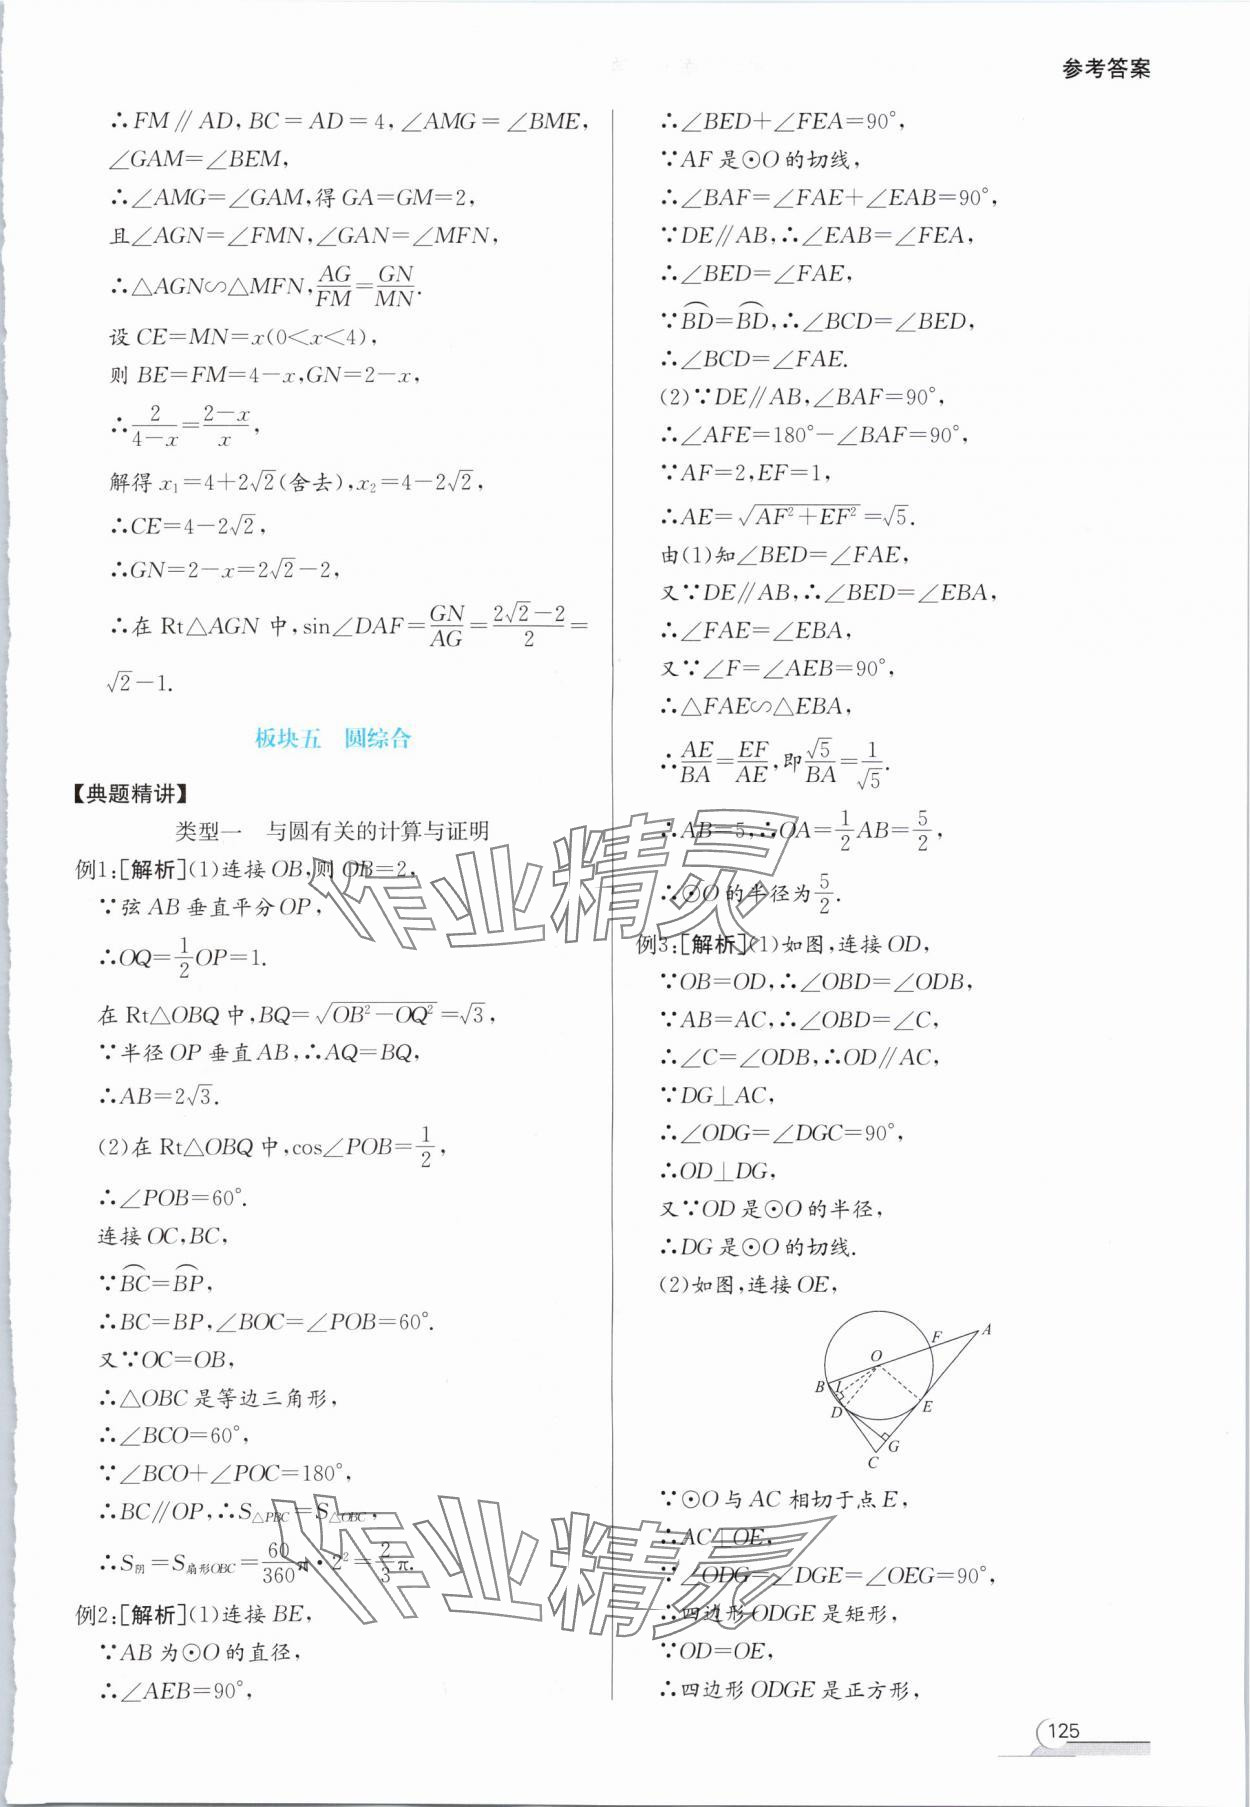 参考答案
∴FM∥AD,BC=AD=4,∠AMG=∠BME,
∠GAM=∠BEM,
∴∠AMG=∠GAM,得GA=GM=2,
且∠AGN=∠FMN,∠GAN=∠MFN,
∴△AGN∽△MFN,AG/FM=GN/MN.
设CE=MN=x(0<x<4),
则BE=FM=4-x,GN=2-x,
∴2/(4-x)=(2-x)/x,
解得x₁=4+2√2(舍去),x₂=4-2√2,
∴CE=4-2√2,
∴GN=2-x=2√2-2,
∴在Rt△AGN中,sin∠DAF=GN/AG=(2√2-2)/2=
√2-1.
板块五 圆综合
【典题精讲】
类型一 与圆有关的计算与证明
例1:[解析](1)连接OB,则OB=2,
∵弦AB垂直平分OP,
∴OQ=1/2OP=1.
在Rt△OBQ中,BQ=√(OB²-OQ²)=√3,
∵半径OP垂直AB,∴AQ=BQ,
∴AB=2√3.
(2)在Rt△OBQ中,cos∠POB=1/2,
∴∠POB=60°.
连接OC,BC,
∵⌒BC=⌒BP,
∴BC=BP,∠BOC=∠POB=60°.
又∵OC=OB,
∴△OBC是等边三角形,
∴∠BCO=60°,
∵∠BCO+∠POC=180°,
∴BC∥OP,∴S△PBC=S△OBC,
∴S阴=S扇形OBC=60/360π·2²=2/3π.
例2:[解析](1)连接BE,
∵AB为⊙O的直径,
∴∠AEB=90°,
∴∠BED+∠FEA=90°,
∵AF是⊙O的切线,
∴∠BAF=∠FAE+∠EAB=90°,
∵DE∥AB,∴∠EAB=∠FEA,
∴∠BED=∠FAE,
∵⌒BD=⌒BD,∴∠BCD=∠BED,
∴∠BCD=∠FAE.
(2)∵DE∥AB,∠BAF=90°,
∴∠AFE=180°-∠BAF=90°,
∵AF=2,EF=1,
∴AE=√(AF²+EF²)=√5.
由(1)知∠BED=∠FAE,
又∵DE∥AB,∴∠BED=∠EBA,
∴∠FAE=∠EBA,
又∵∠F=∠AEB=90°,
∴△FAE∽△EBA,
∴AE/BA=EF/AE,即√5/BA=1/√5.
∴AB=5,∴OA=1/2AB=5/2,
∴⊙O的半径为5/2.
例3:[解析](1)如图,连接OD,
∵OB=OD,∴∠OBD=∠ODB,
∵AB=AC,∴∠OBD=∠C,
∴∠C=∠ODB,∴OD∥AC,
∵DG⊥AC,
∴∠ODG=∠DGC=90°,
∴OD⊥DG,
又∵OD是⊙O的半径,
∴DG是⊙O的切线.
(2)如图,连接OE,
A
F
O
B
I
E
D
G
C
∵⊙O与AC相切于点E,
∴AC⊥OE,
∵∠ODG=∠DGE=∠OEG=90°,
∴四边形ODGE是矩形,
∵OD=OE,
∴四边形ODGE是正方形,
125
作业精灵
作业精灵